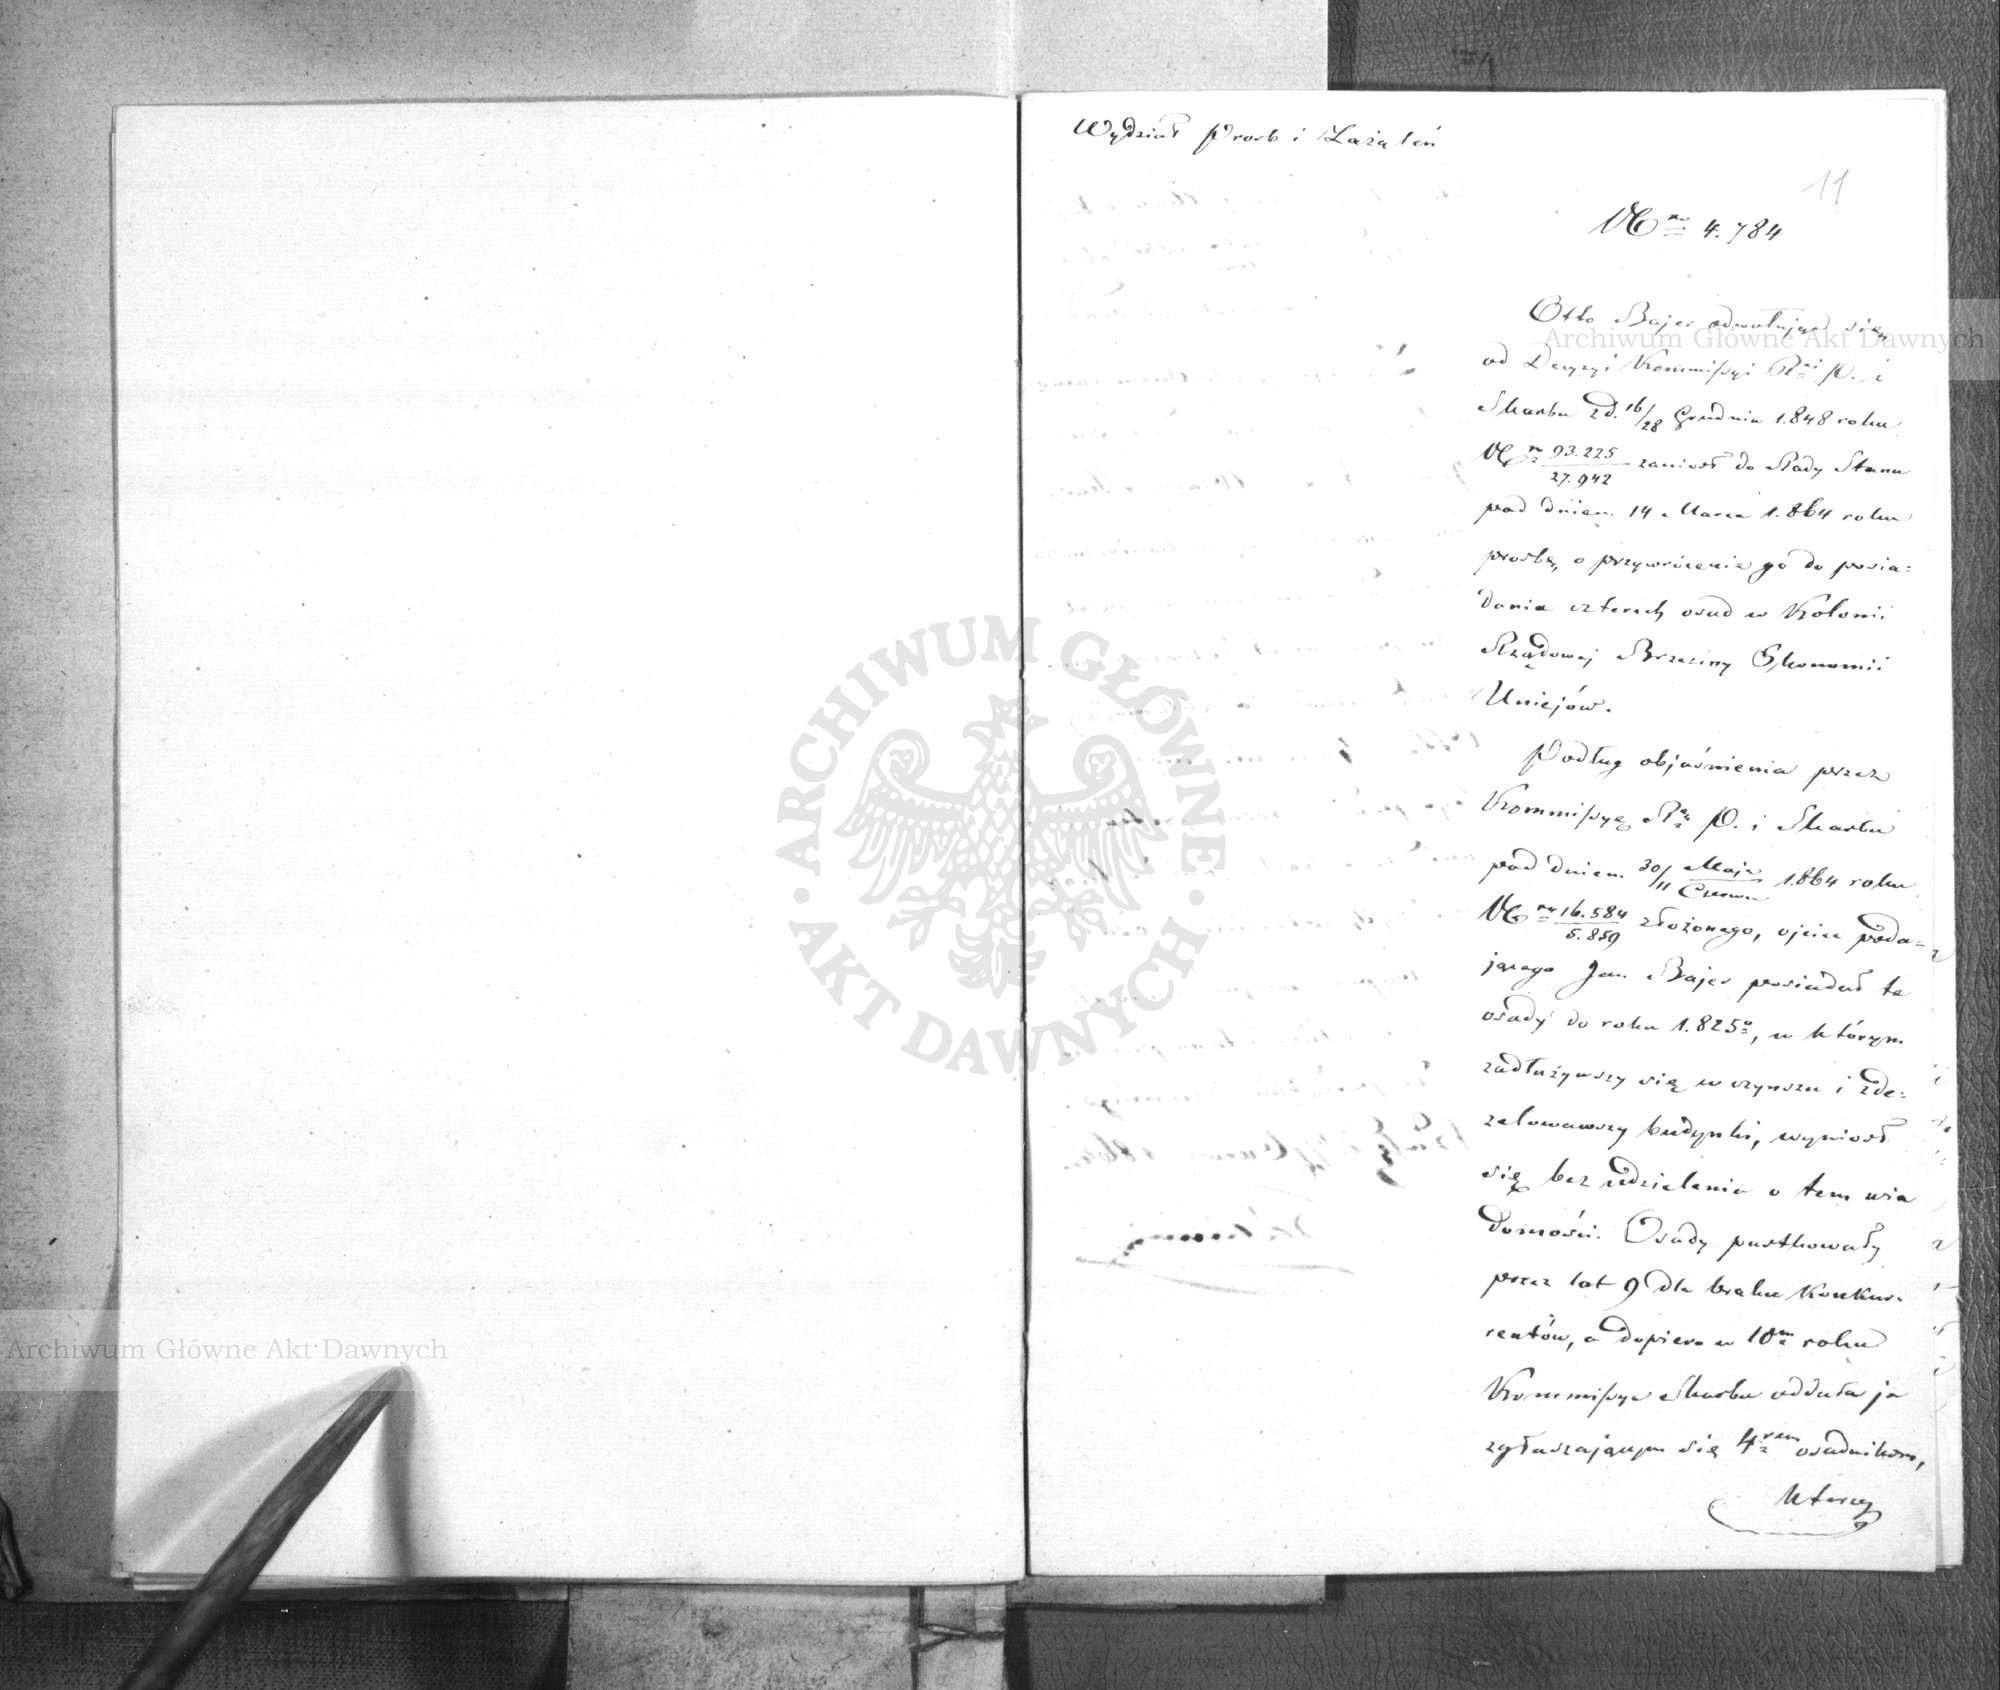 Wydział Prośb i Zażaleń
11
Nro 4.784
Otto Bajer odwołując się
od Decyzyi Kommissyi Rei P. i
Skarbu z d. 16/28 Grudnia 1.848 roku
Nr 93.225/27.942 zaniosł do Rady Stanu
pod dniem 14 Marca 1.864 roku
prośbę, o przywrócenie go do posia=
dania czterech osad w Kolonii
Rządowej Brzeziny Ekonomii
Uniejów.
Podług objaśnienia przez
Kommissyę Rą P. i Skarbu
pod dniem 30 Maja/11 Czerwca 1.864 roku
Nr 16.584/5.859 złożonego, ojciec poda=
jącego Jan Bajer posiadał te
osady do roku 1.825o, w którym
zadłużywszy się w czynszu i zde=
zelowawszy budynki, wyniosł
się bez udzielenia o tem wia
domości. Osady pustkowały
przez lat 9 dla braku Konkur=
rentów, a dopiero w 10m roku
Kommissya Skarbu oddała je
zgłaszającym się 4rem osadnikom,
którzy
Archiwum Główne Akt Dawnych
Archiwum Główne Akt Dawnych
ARCHIWUM GŁÓWNE AKT DAWNYCH